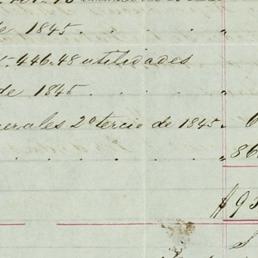 de 1845.
446.48 utilidades
de 1845
nerales 2º tercio de 1845. 6
86
$93